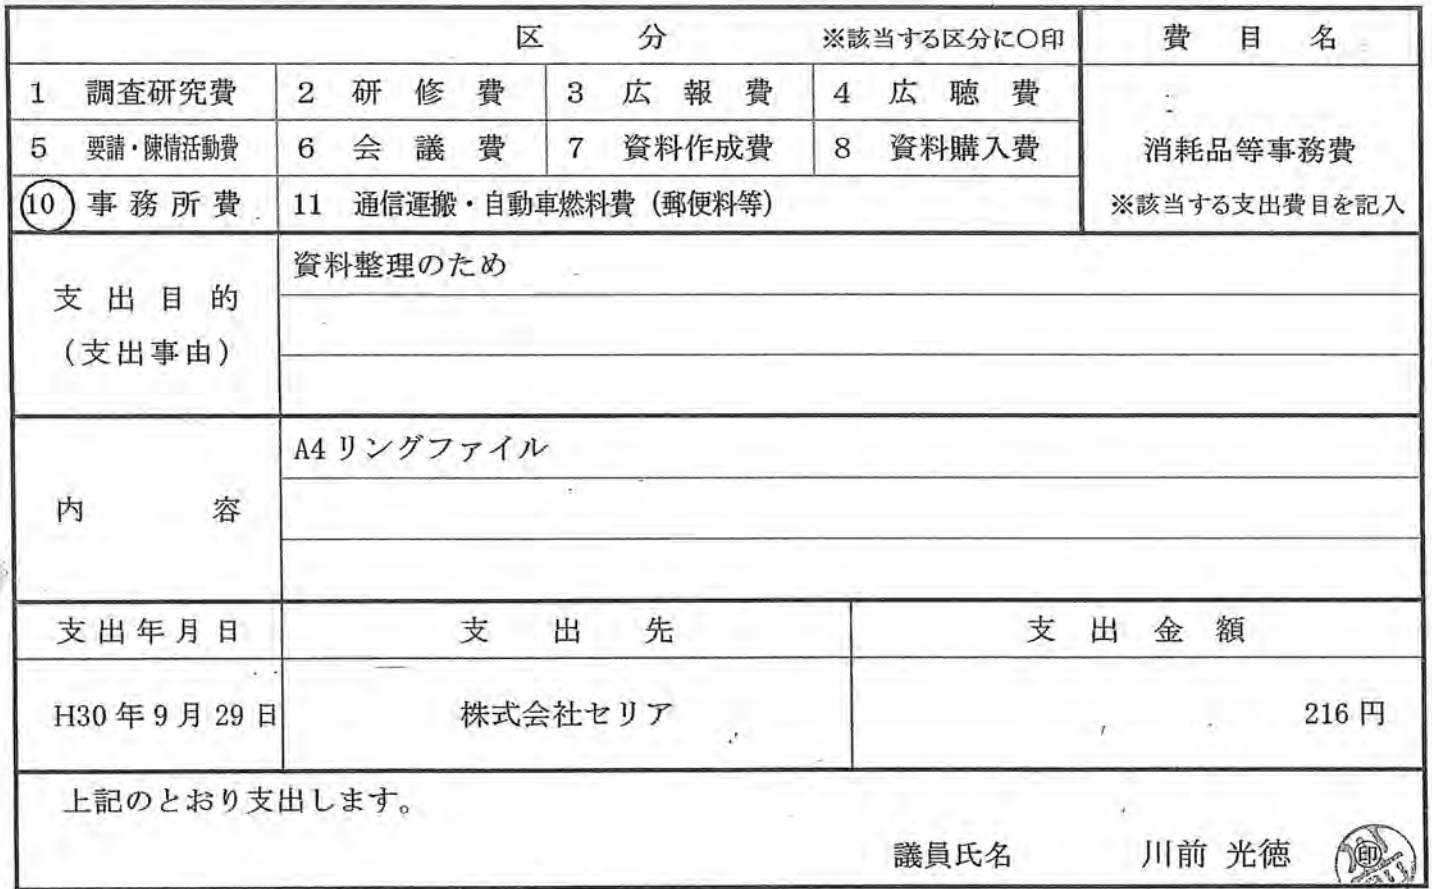 区 分 ※該当する区分に○印 費 目 名
1 調査研究費 2 研 修 費 3 広 報 費 4 広 聴 費
5 要請・陳情活動費 6 会 議 費 7 資料作成費 8 資料購入費 消耗品等事務費
10 事務所費 11 通信運搬・自動車燃料費(郵便料等) ※該当する支出費目を記入
支 出 目 的
(支出事由)
資料整理のため
内 容
A4リングファイル
支出年月日 支 出 先 支 出 金 額
H30年9月29日 株式会社セリア 216円
上記のとおり支出します。
議員氏名 川前 光徳 印